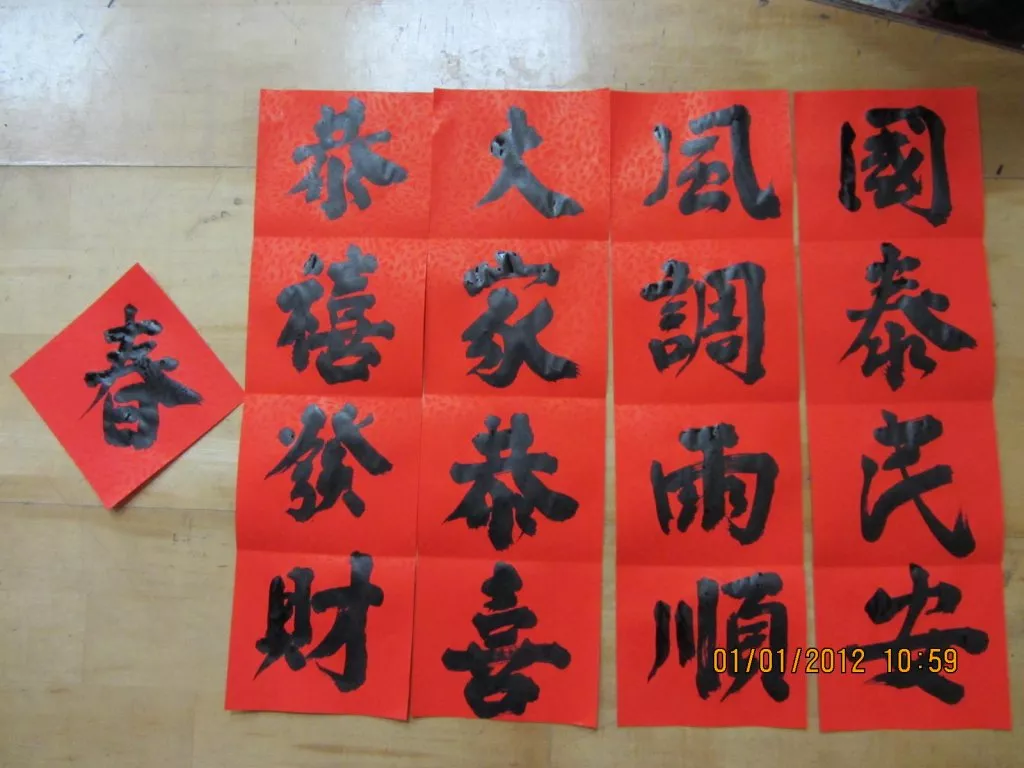 國泰民安
風調雨順
大家恭喜
恭禧發財
春
01/01/2012 10:59